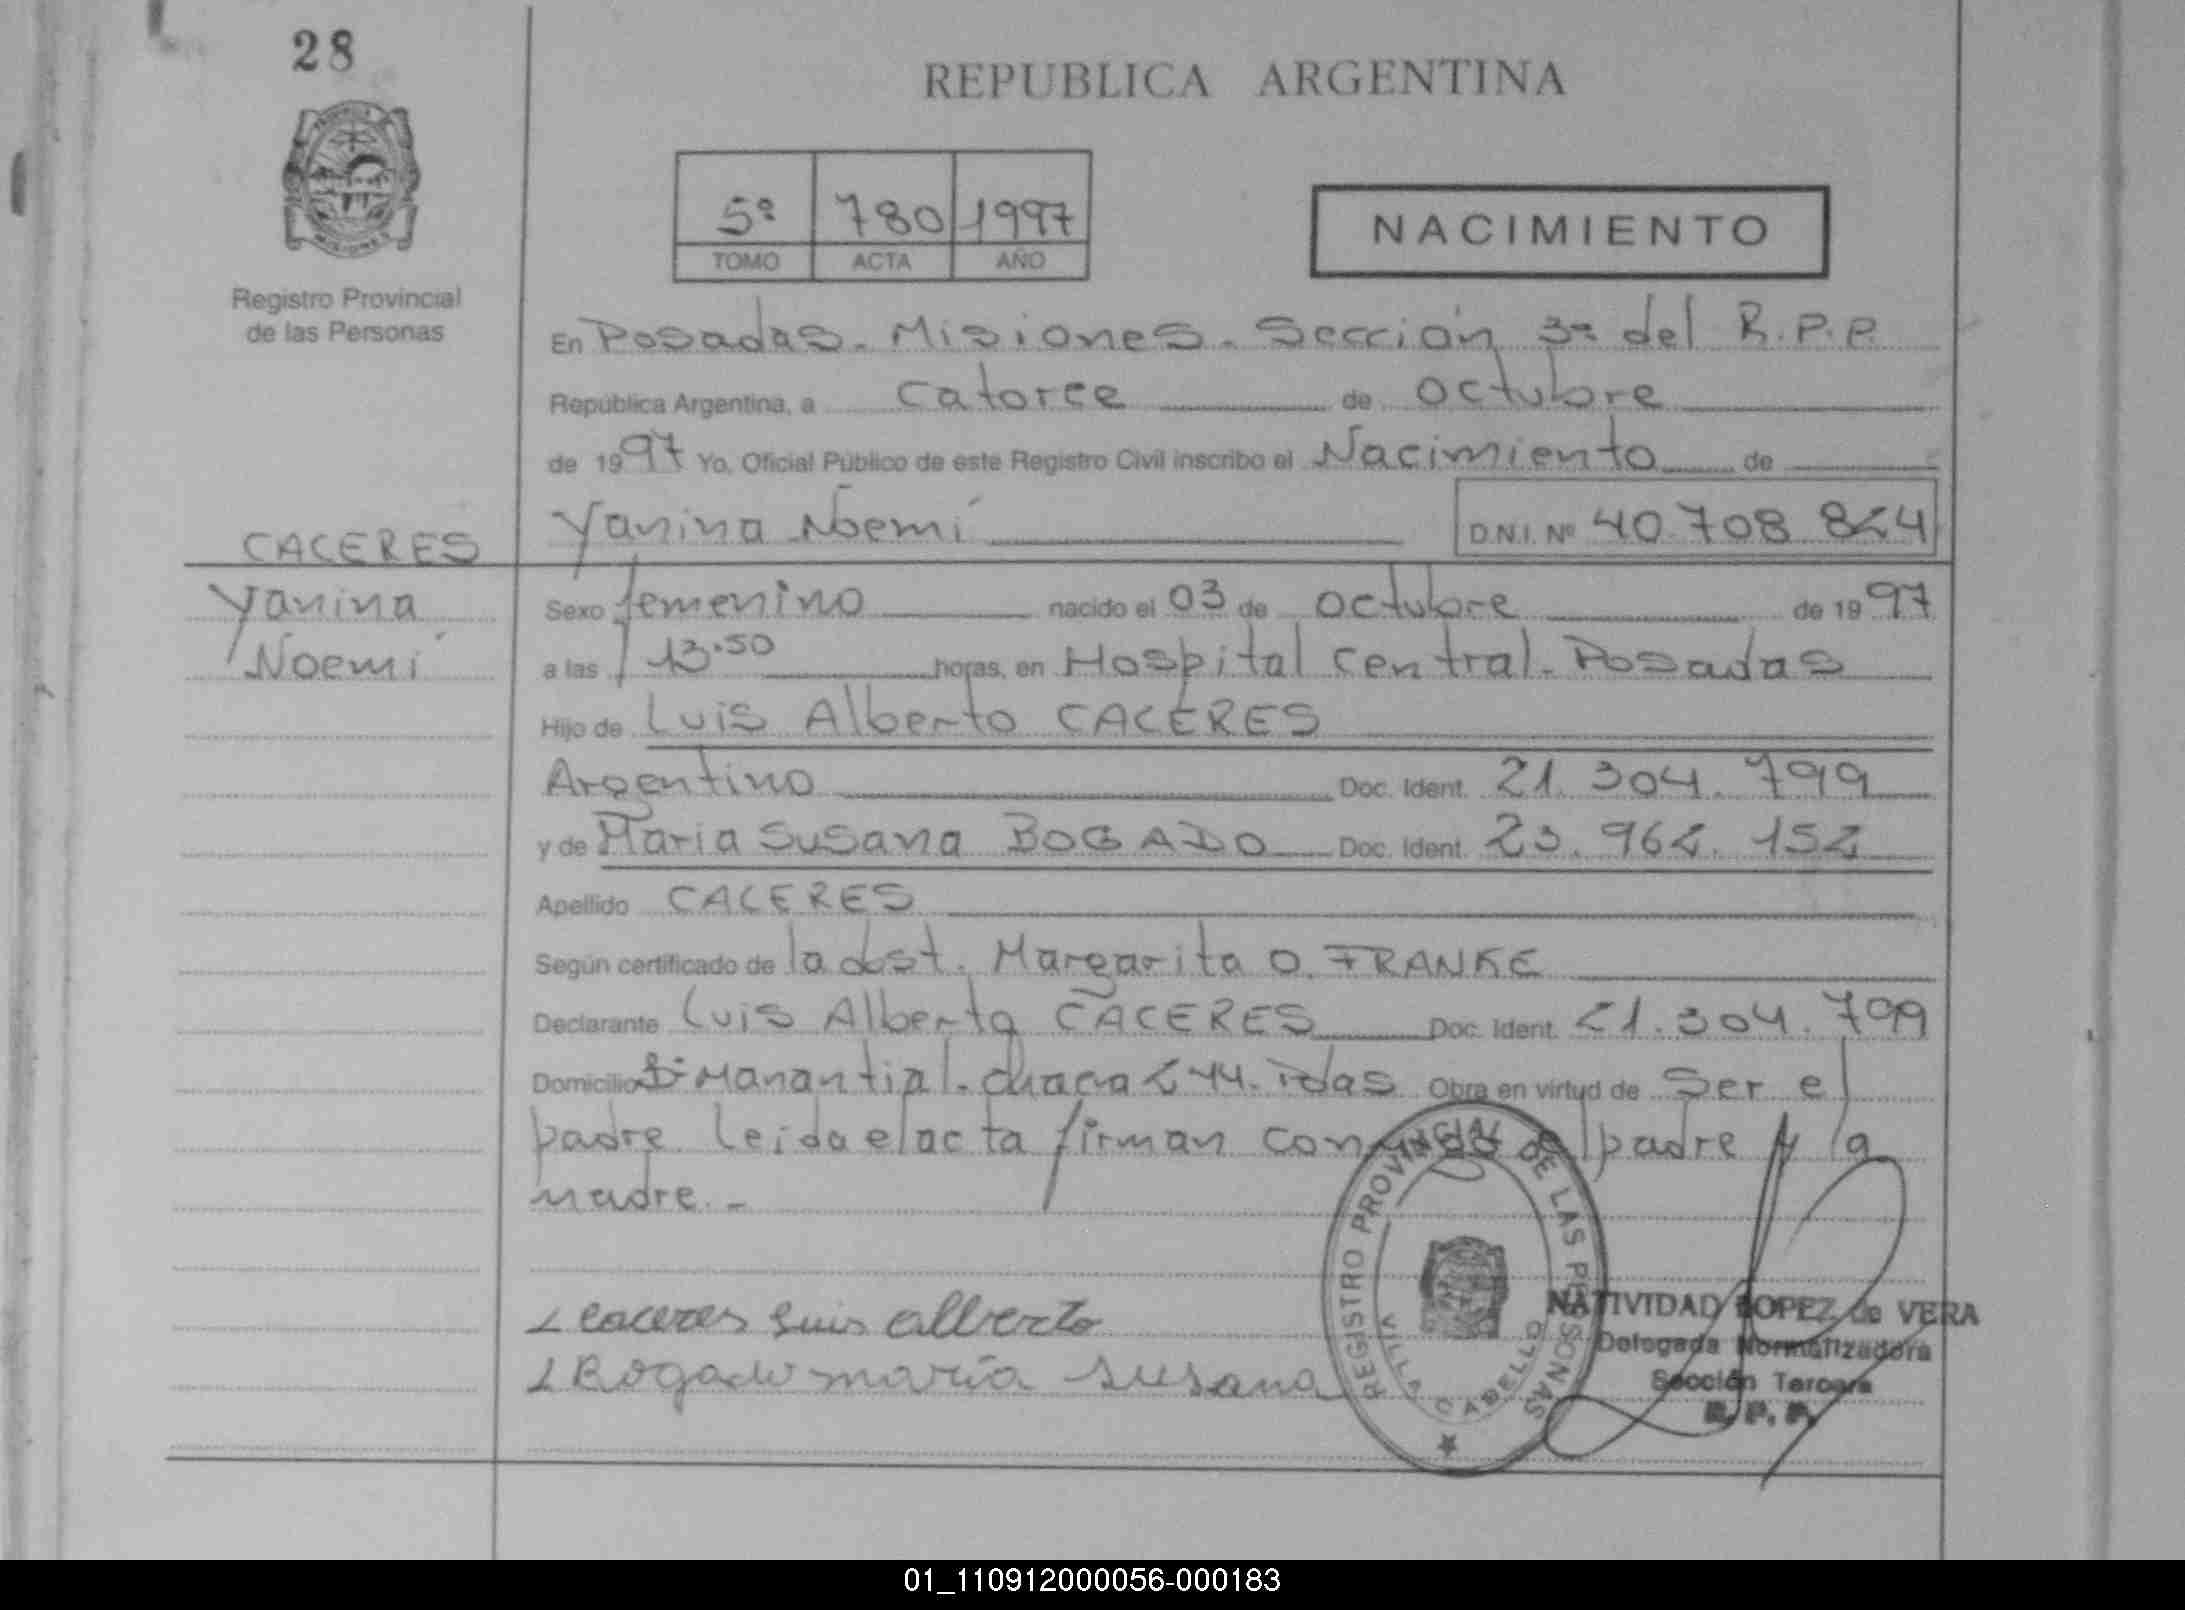 28
REPUBLICA ARGENTINA
5º 780 1997
TOMO ACTA AÑO
NACIMIENTO
Registro Provincial
de las Personas
En Posadas - Misiones - Sección 3ª del R.P.P.
República Argentina, a catorce de octubre
de 1997 Yo, Oficial Público de este Registro Civil inscribo el Nacimiento de
Yanina Noemí D.N.I. Nº 40.708.824
CACERES
Yanina
Noemí
Sexo femenino nacido el 03 de octubre de 1997
a las 13.50 horas, en Hospital Central - Posadas
Hijo de Luis Alberto CACERES
Argentino Doc. Ident. 21.304.799
y de Maria Susana BOGADO Doc. Ident. 23.962.152
Apellido CACERES
Según certificado de la obst. Margarita O. FRANKE
Declarante Luis Alberto CACERES Doc. Ident. 21.304.799
Domicilio Bº Manantial - chacra 244 - Pdas Obra en virtud de ser el
padre leida el acta firman conmigo el padre y la
madre. -
Caceres Luis alberto
Bogado maria susana
REGISTRO PROVINCIAL DE LAS PERSONAS
VILLA CABELLO
NATIVIDAD LOPEZ de VERA
Delegada Normalizadora
Sección Tercera
R. P. P.
01_110912000056-000183